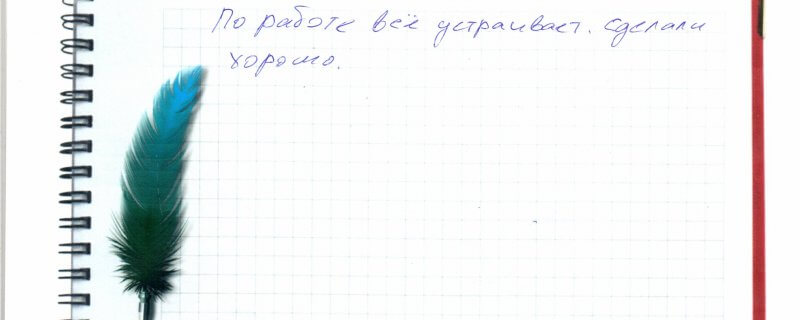 По работе всё устраивает. Сделали
хорошо.